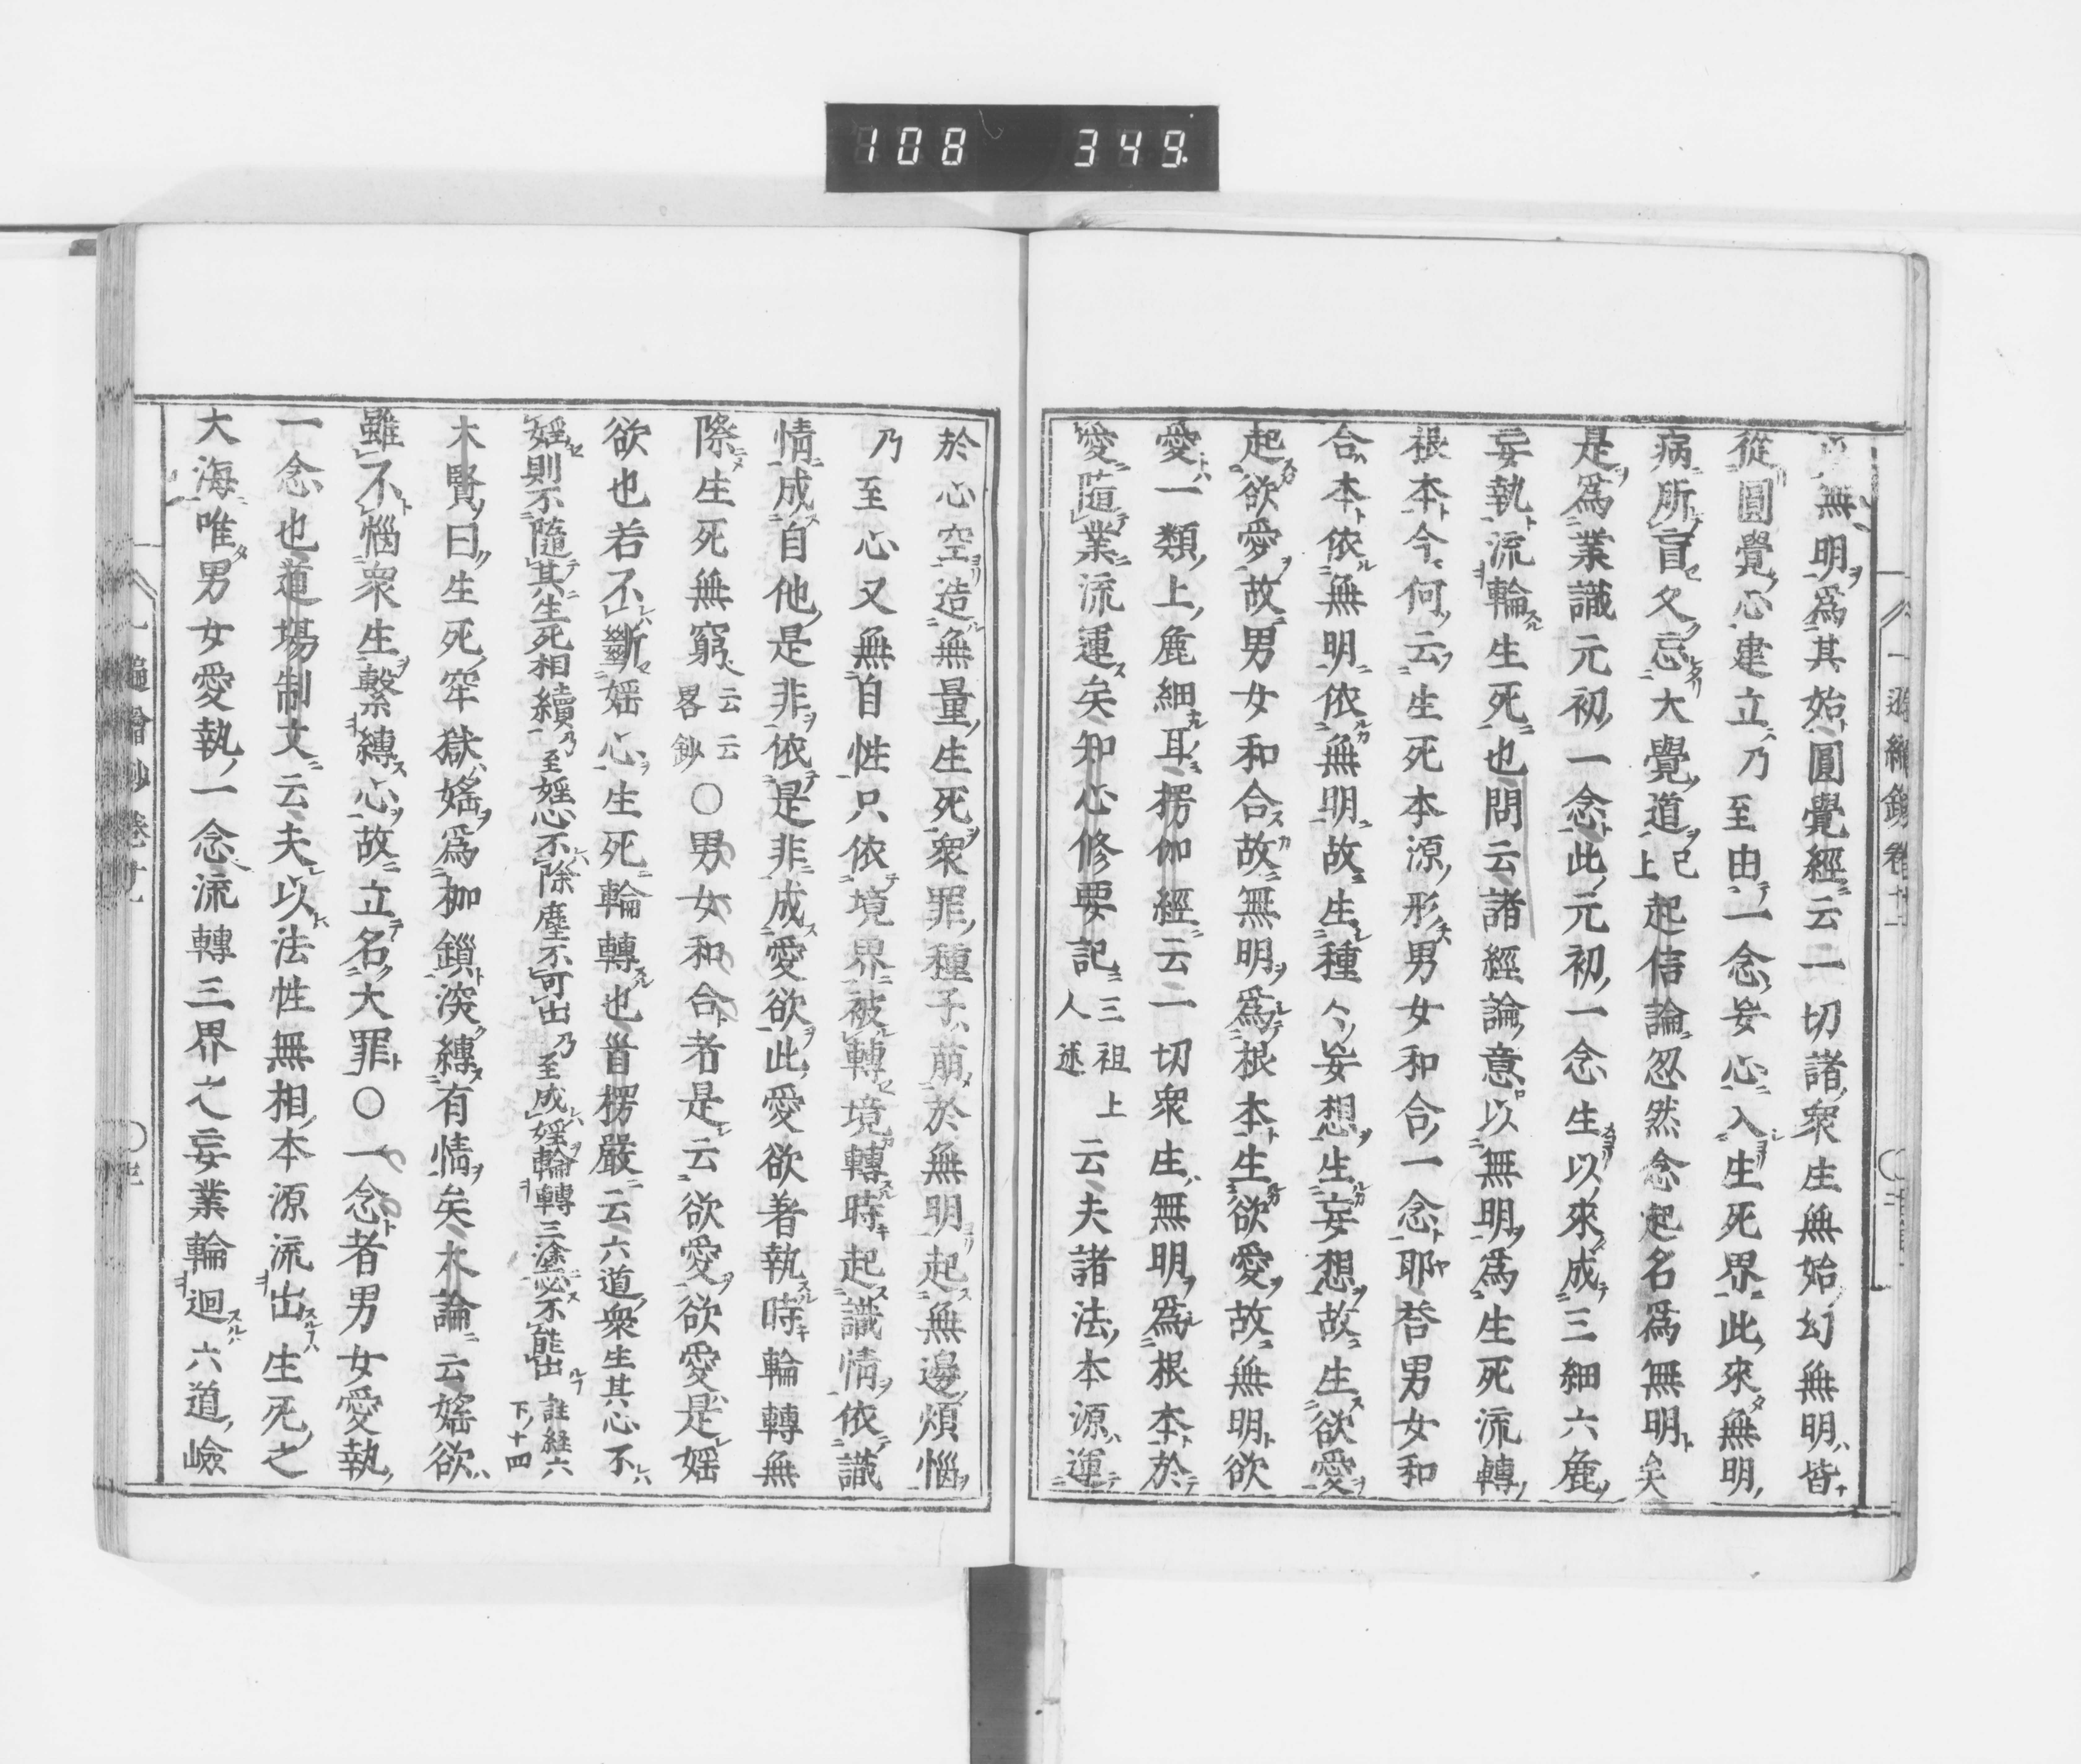 108 349
無明爲其始圓覺經云一切諸衆生無始幻無明皆
從圓覺心建立乃至由一念妄心入生死界此來無明
病所盲久忘大覺道已上起信論忽然念起名爲無明矣
是爲業識元初一念此元初一念生以來成三細六麁
妄執流輪生死也問云諸經論意以無明爲生死流轉
根本今何云生死本源形男女和合一念耶答男女和
合本依無明依無明故生種々妄想生妄想故生欲愛
起欲愛故男女和合故無明爲根本生欲愛故無明欲
愛一類上麁細耳楞伽經云一切衆生無明爲根本於
愛隨業流運矣知心修要記三祖上人述云夫諸法本源運
於心空造無量生死衆罪種子萠於無明起無邊煩惱
乃至心又無自性只依境界被轉境轉時起識情依識
情成自他是非依是非成愛欲此愛欲著執時輪轉無
際生死無窮云云畧鈔〇男女和合者是云欲愛欲愛是婬
欲也若不斷婬心生死輪轉也首楞嚴云六道衆生其心不
婬則不隨其生死相續乃至婬心不除塵不可出乃至成婬輪轉三塗必不能出註経六下ノ十四
木賢曰生死牢獄婬爲枷鎖深縛有情矣大論云婬欲
雖不惱衆生繫縛心故立名大罪〇一念者男女愛執
一念也道場制文云夫以法性無相本源流出生死之
大海唯男女愛執一念流轉三界之妄業輪迴六道嶮